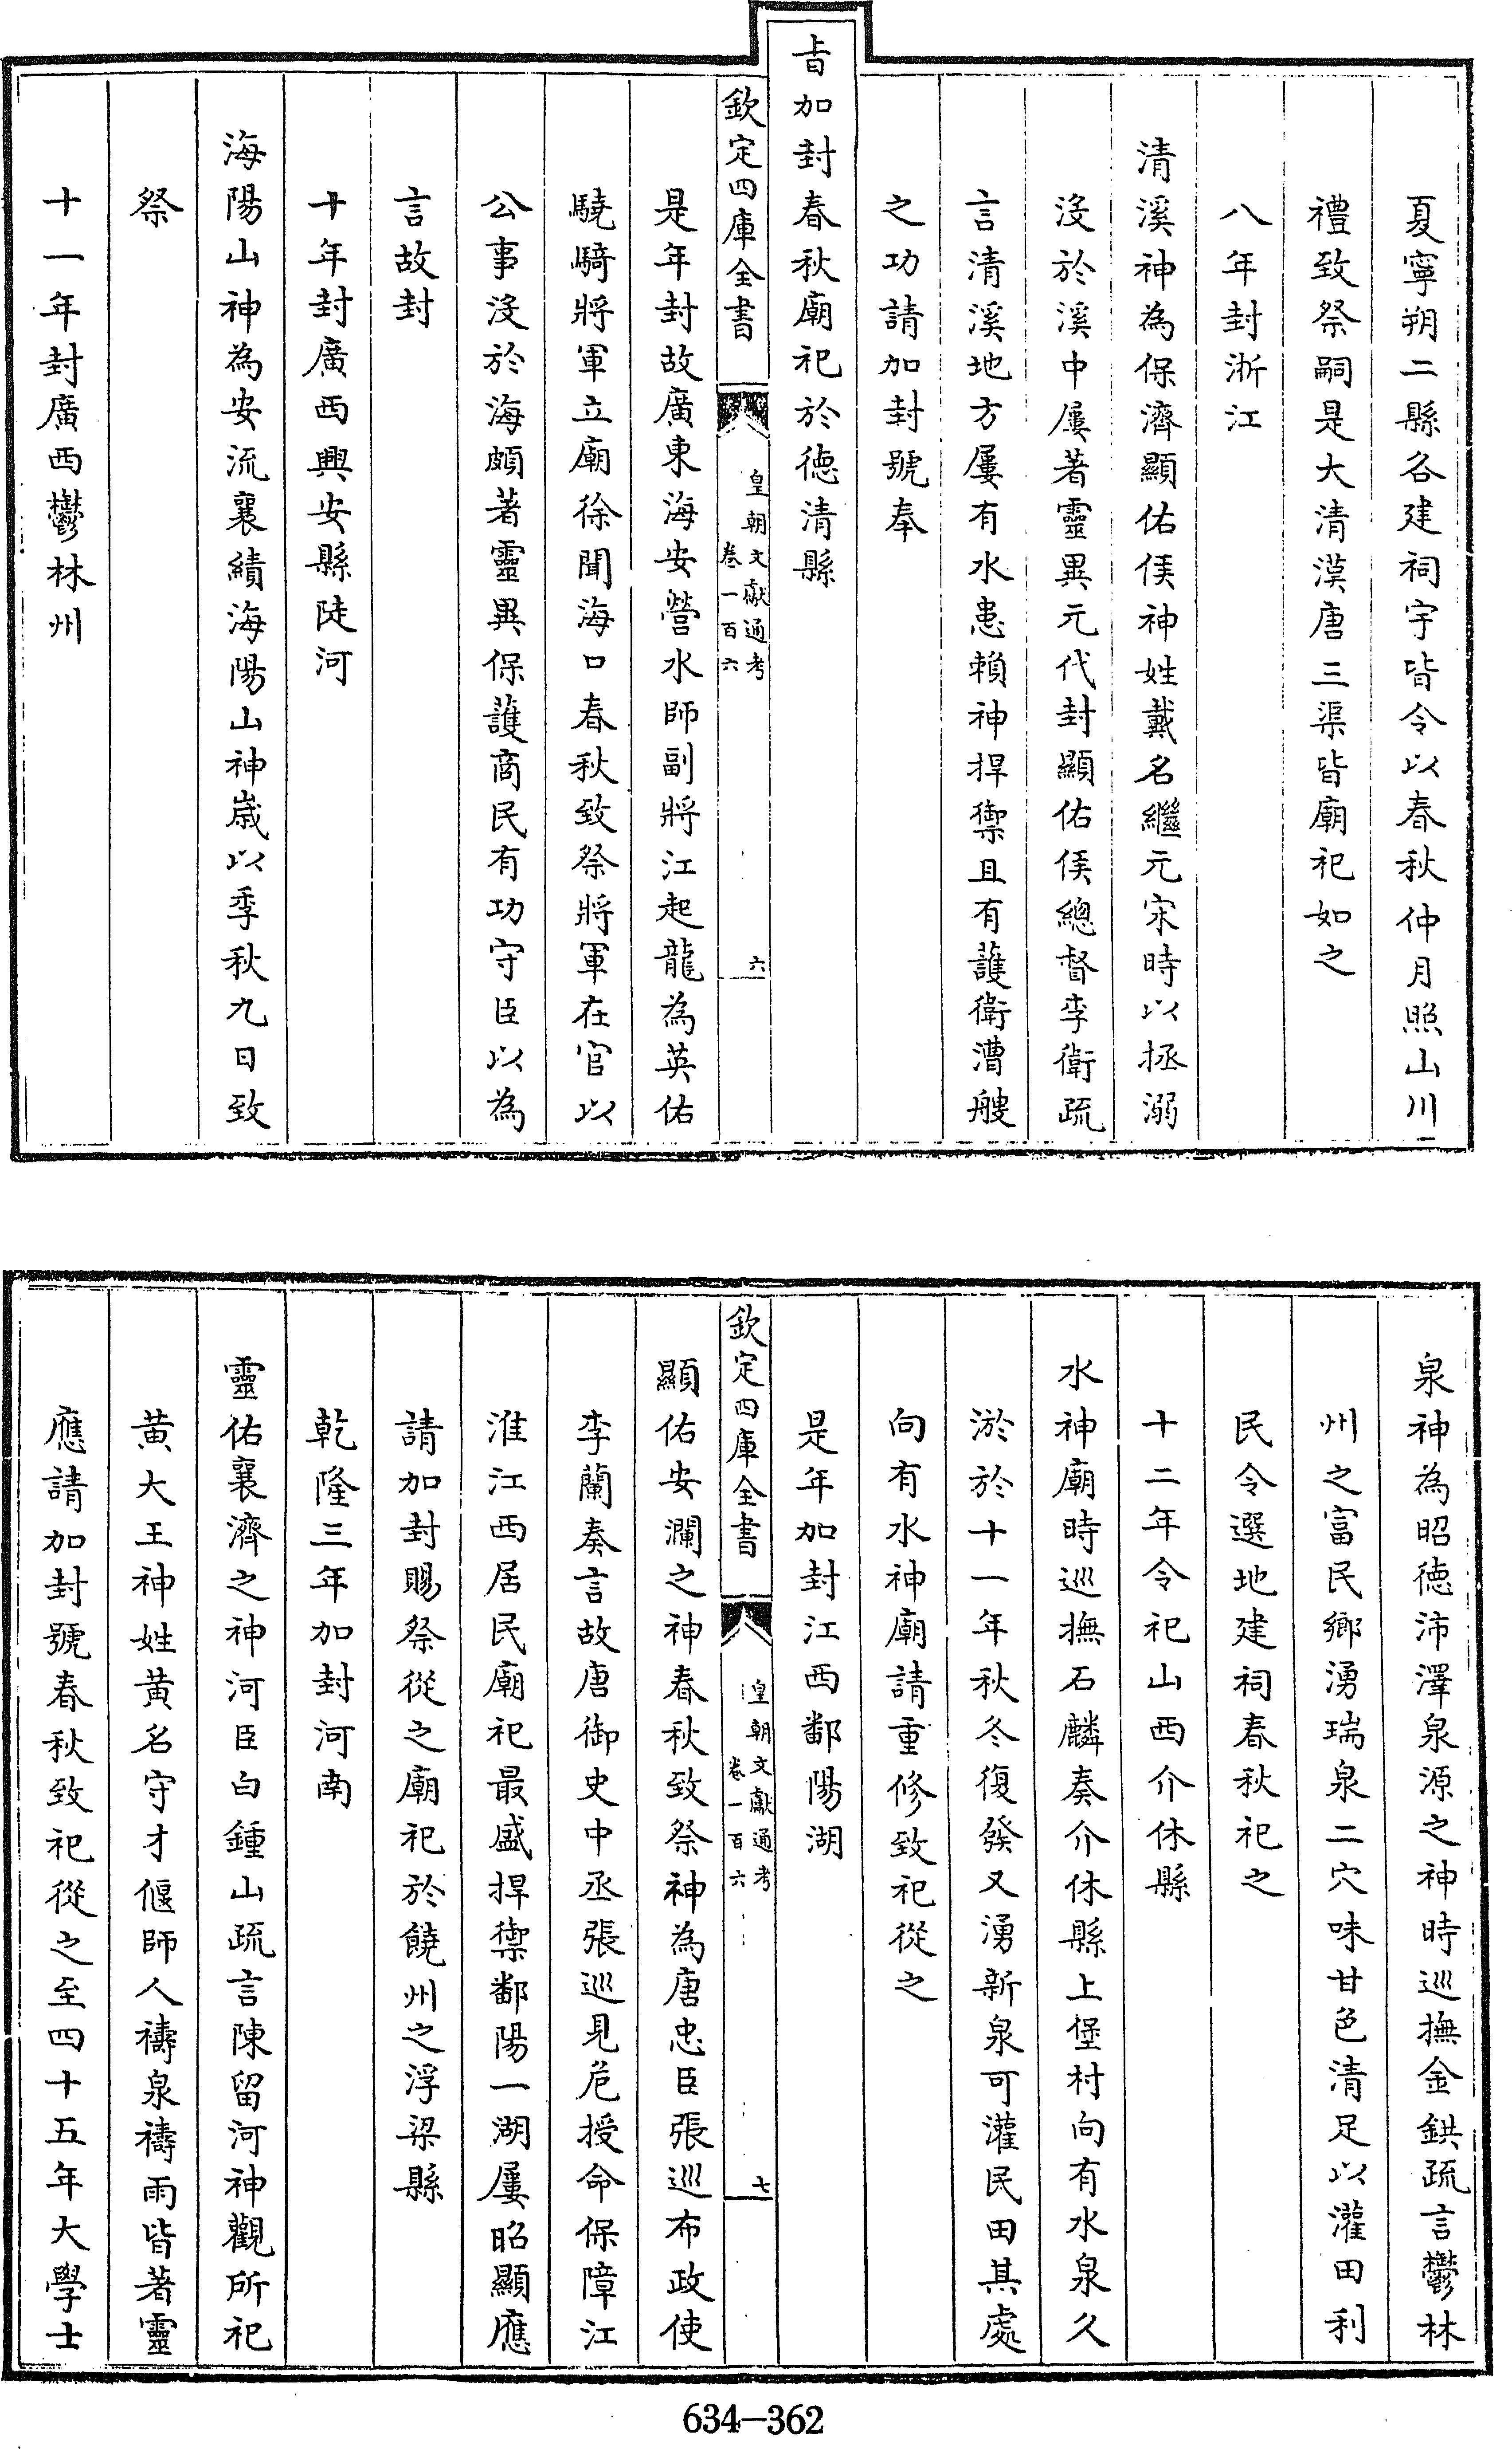 夏寧朔二縣各建祠宇皆令以春秋仲月照山川
禮致祭嗣是大清漠唐三渠皆廟祀如之
八年封浙江
清溪神為保濟顯佑侯神姓戴名繼元宋時以拯溺
沒於溪中屢著靈異元代封顯佑侯總督李衛疏
言清溪地方屢有水患賴神捍禦且有護衛漕艘
之功請加封號奉
旨加封春秋廟祀於德清縣
欽定四庫全書
皇朝文獻通考
卷一百六
六
是年封故廣東海安營水師副將江起龍為英佑
驍騎將軍立廟徐聞海口春秋致祭將軍在官以
公事沒於海頗著靈異保護商民有功守臣以為
言故封
十年封廣西興安縣陡河
海陽山神為安流襄績海陽山神歲以季秋九日致
祭
十一年封廣西鬱林州
泉神為昭德沛澤泉源之神時巡撫金鉷疏言鬱林
州之富民鄉湧瑞泉二穴味甘色清足以灌田利
民令選地建祠春秋祀之
十二年令祀山西介休縣
水神廟時巡撫石麟奏介休縣上堡村向有水泉久
淤於十一年秋冬復發又湧新泉可灌民田其處
向有水神廟請重修致祀從之
是年加封江西鄱陽湖
欽定四庫全書
皇朝文獻通考
卷一百六
七
顯佑安瀾之神春秋致祭神為唐忠臣張巡布政使
李蘭奏言故唐御史中丞張巡見危授命保障江
淮江西居民廟祀最盛捍禦鄱陽一湖屢昭顯應
請加封賜祭從之廟祀於饒州之浮梁縣
乾隆三年加封河南
靈佑襄濟之神河臣白鍾山疏言陳留河神觀所祀
黃大王神姓黃名守才偃師人禱泉禱雨皆著靈
應請加封號春秋致祀從之至四十五年大學士
634-362